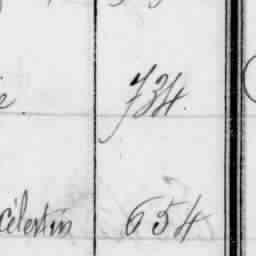 734.
célestin 654